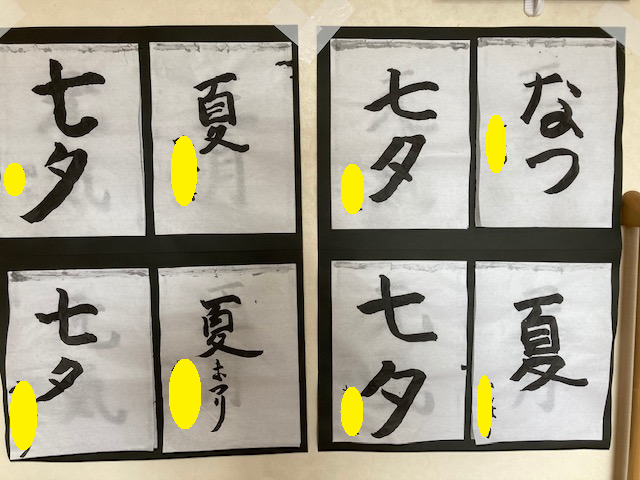 七夕
夏
七夕
なつ
七夕
夏まつり
七夕
夏